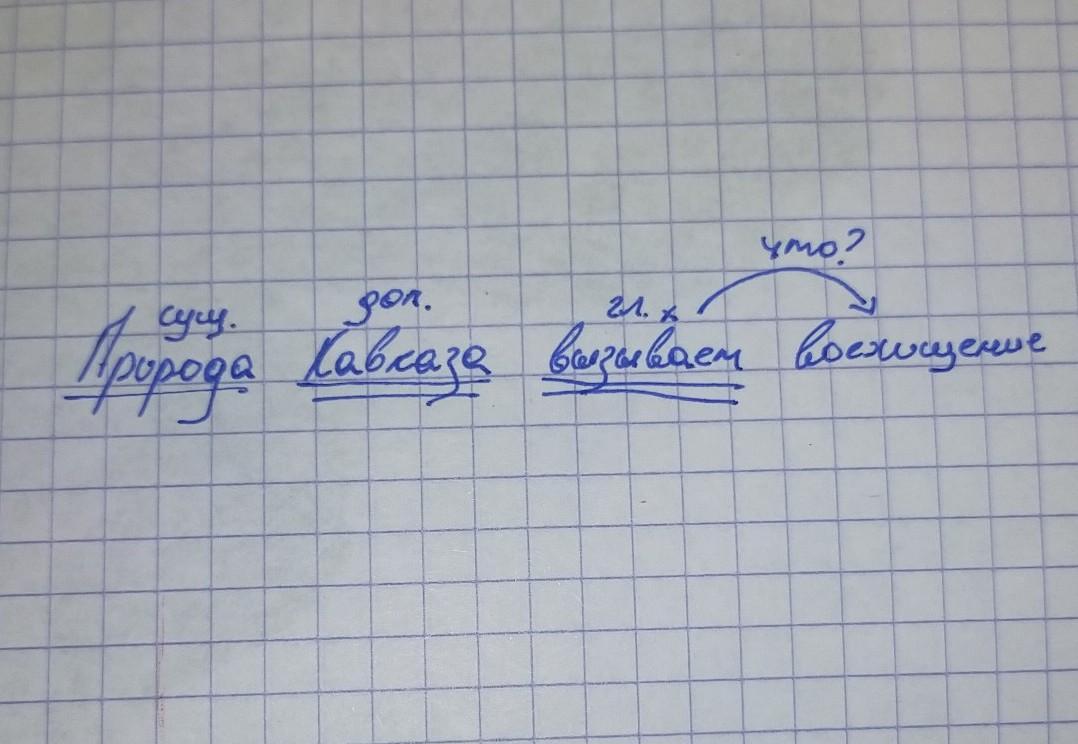 что?
сущ. доп. гл. х
Природа Кавказа вызывает восхищение